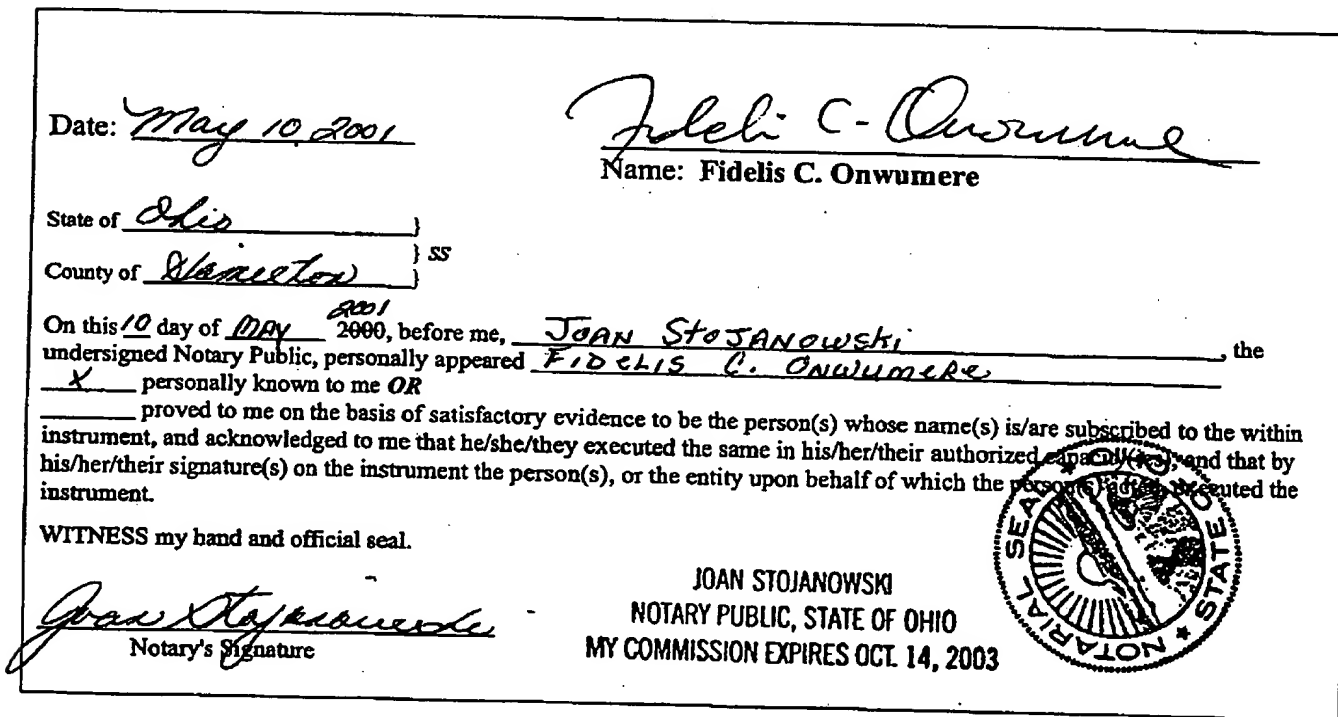 Date: May 10, 2001 Fideli C- Onwumere
Name: Fidelis C. Onwumere
State of Ohio }
} SS
County of Hamilton }
2001
On this 10 day of MAY 2000, before me, JOAN STOJANOWSKI, the
undersigned Notary Public, personally appeared FIDELIS C. ONWUMERE
X personally known to me OR
proved to me on the basis of satisfactory evidence to be the person(s) whose name(s) is/are subscribed to the within
instrument, and acknowledged to me that he/she/they executed the same in his/her/their authorized capacity(ies), and that by
his/her/their signature(s) on the instrument the person(s), or the entity upon behalf of which the person(s) acted, executed the
instrument.
WITNESS my hand and official seal.
Joan Stojanowski
Notary's Signature
JOAN STOJANOWSKI
NOTARY PUBLIC, STATE OF OHIO
MY COMMISSION EXPIRES OCT. 14, 2003
NOTARIAL SEAL ★ STATE OF OHIO ★